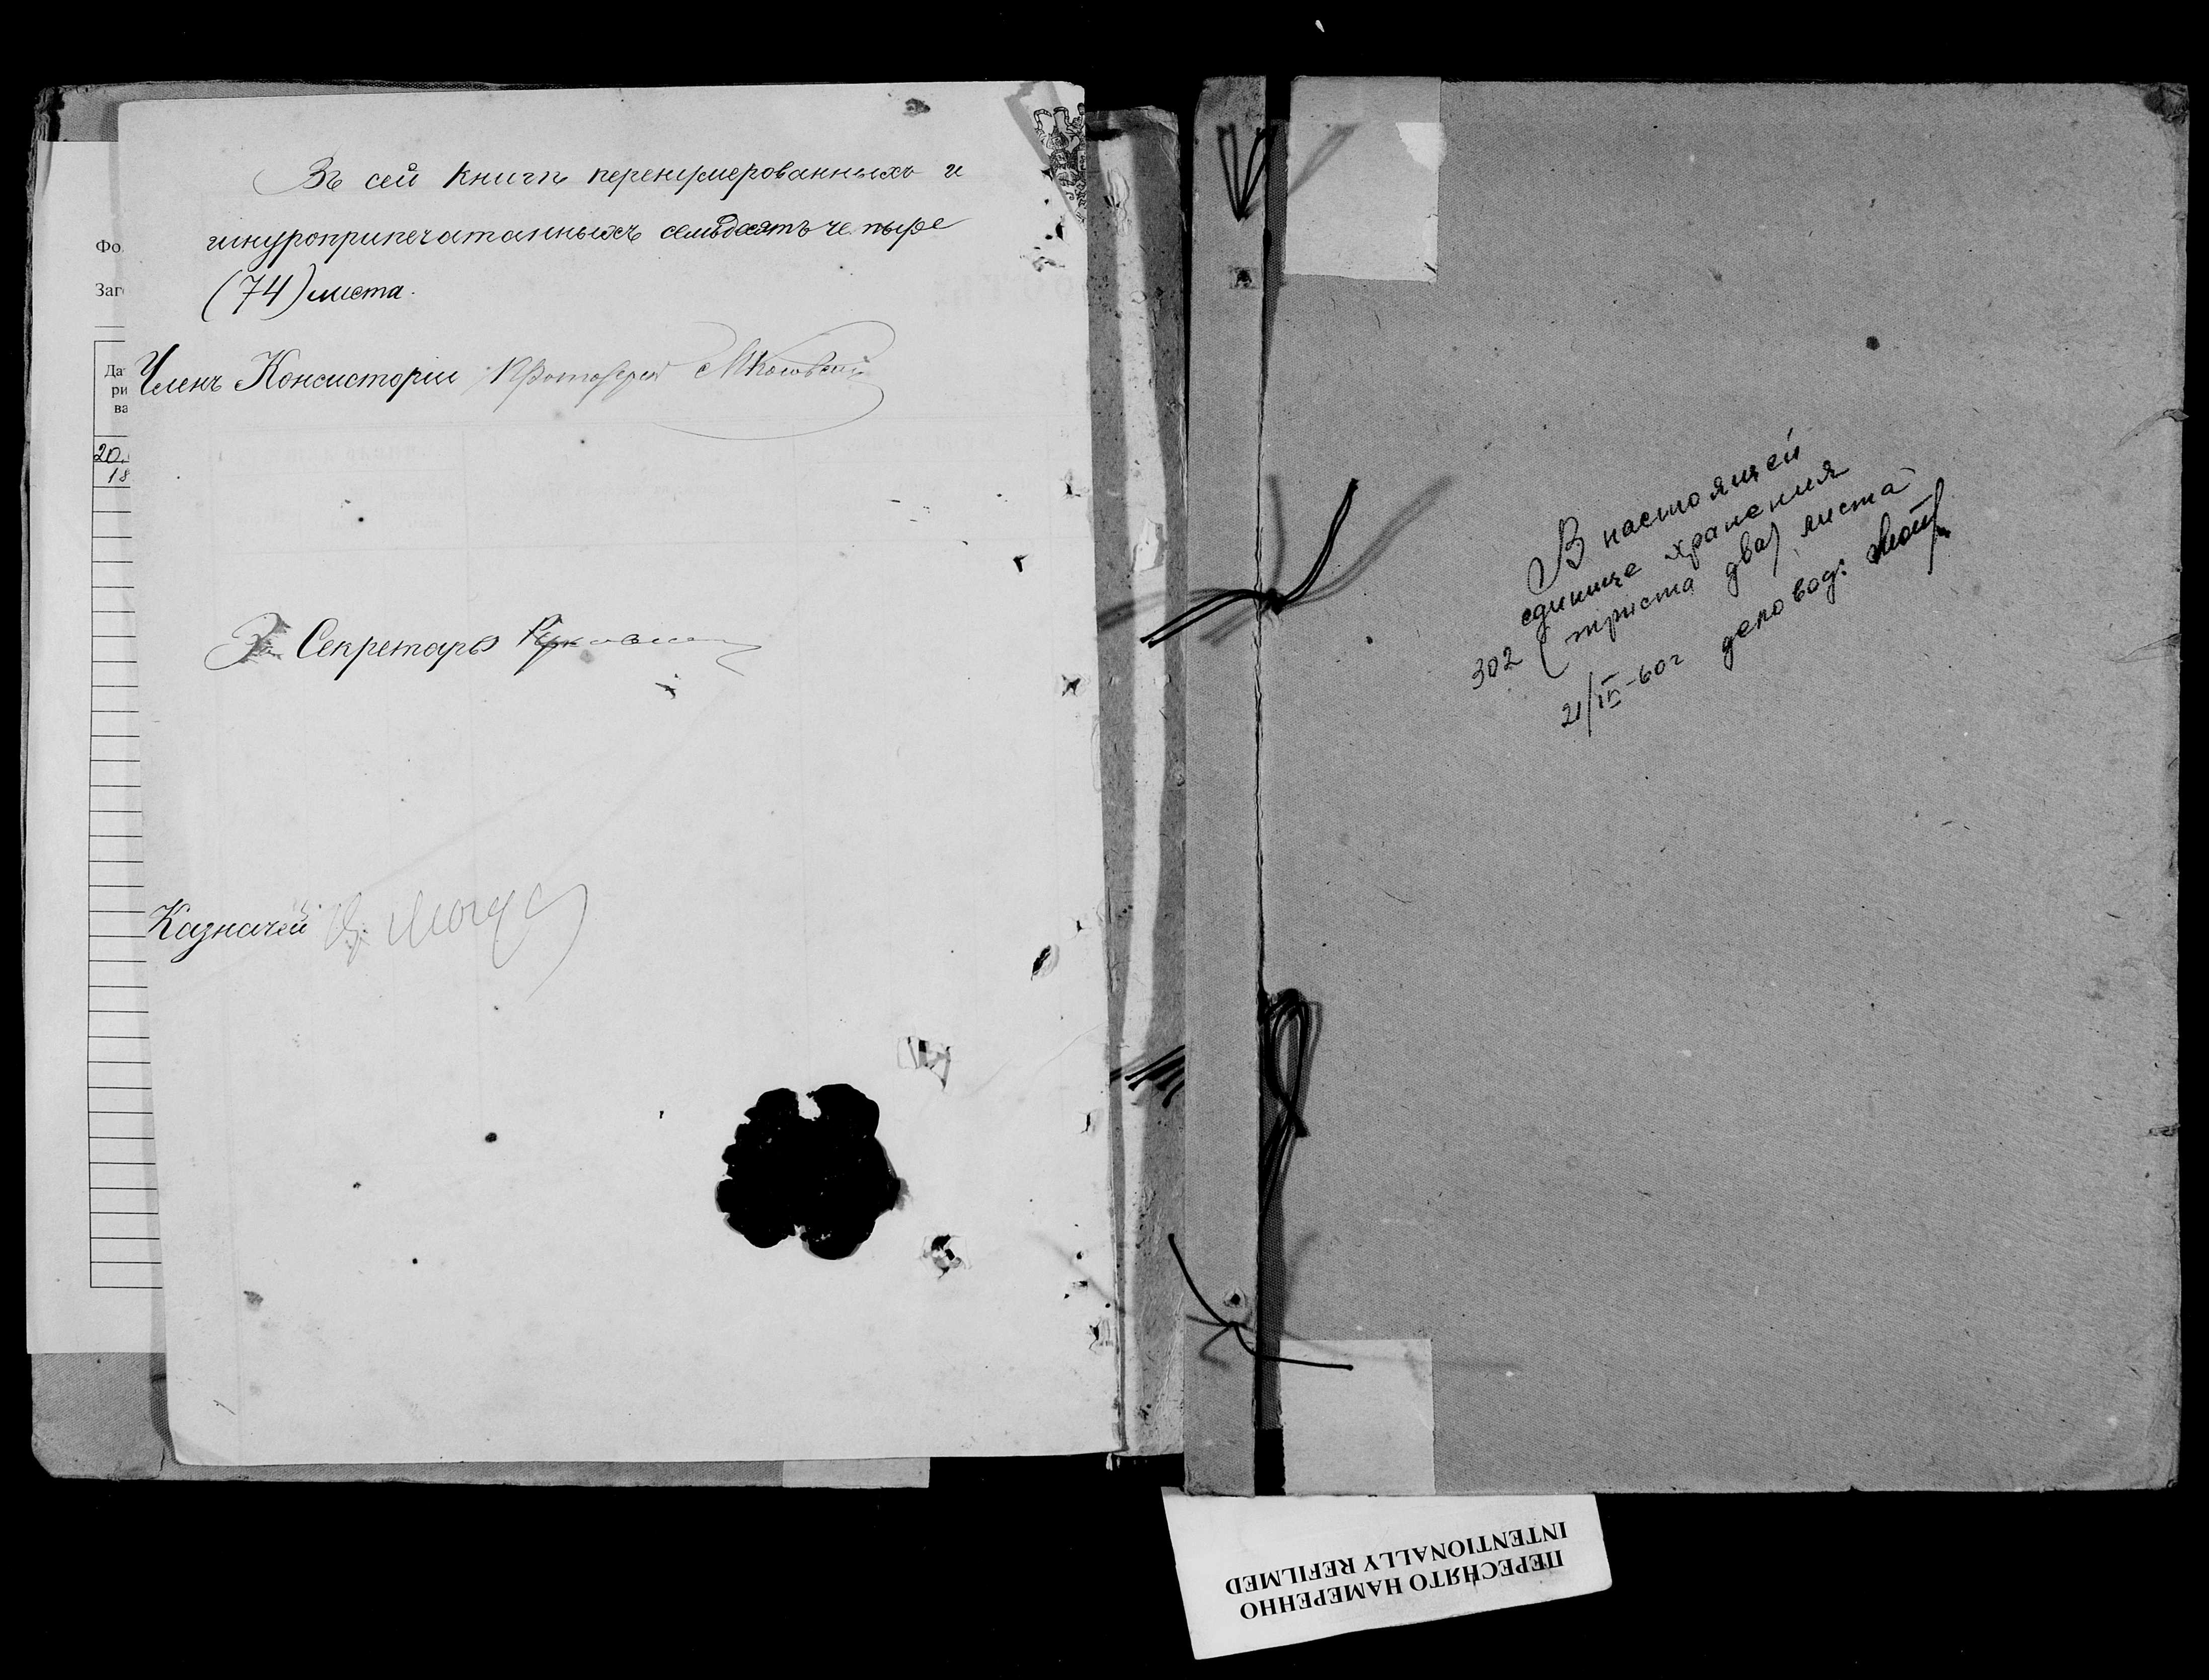 Въ сей книгѣ перенумерованныхъ и
шнуроприпечатанныхъ семьдесятъ четыре
(74) листа.
Членъ Консисторіи Протоіерей
За Секретаря
Казначей
Фо
Заг
Да
ри
ва
20.
18
В настоящей
единице хранения
302 (триста два) листа
21/IV-60г деловод:
ПЕРЕСНЯТО НАМЕРЕННО
INTENTIONALLY REFILMED